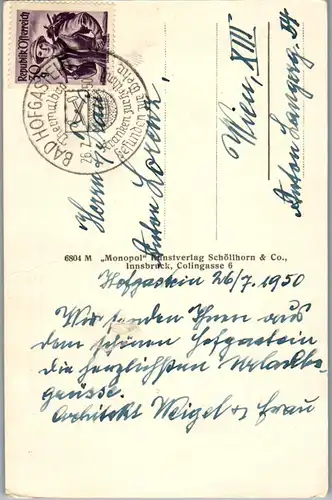 Republik Österreich
30
BAD HOFGAST
Thermalbad
26.7.
Kranken zur Heilung
Gesunden zur
Herrn u. Frau
Anton Lorenz
Wien, XIII
Anton Langerg.
6804 M „Monopol" Kunstverlag Schöllhorn & Co.,
Innsbruck, Colingasse 6
Hofgastein 26/7. 1950
Wir senden Ihnen aus
dem schönen Hofgastein
die herzlichsten Urlaubs-
grüsse.
Architekt Weigel u. Frau